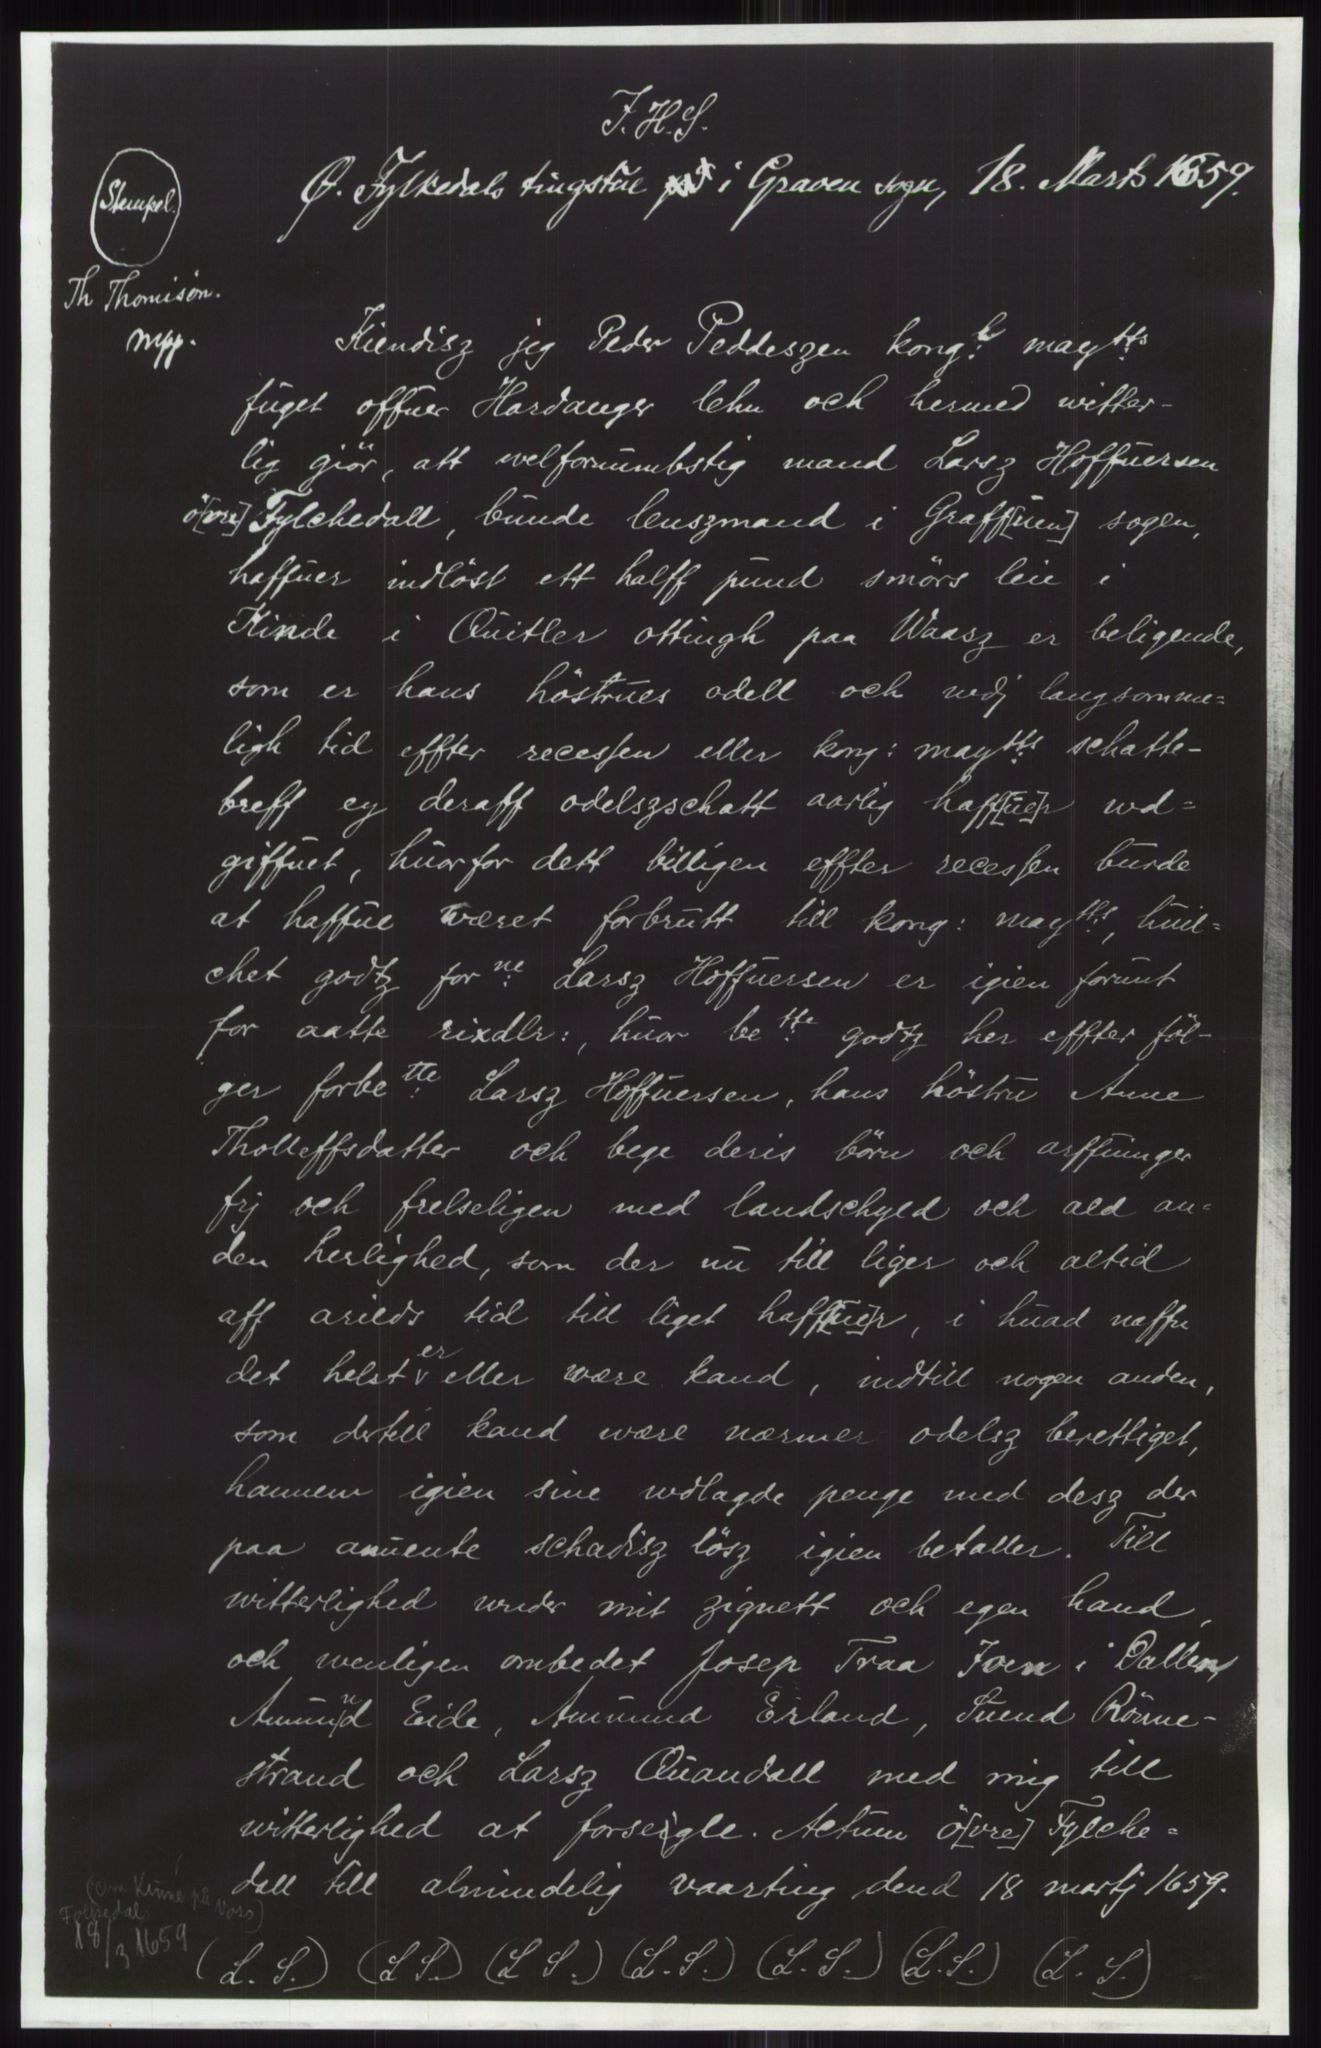 J. H. S.
Ø. Fylkedals tingstue i Graven sogn, 18. Marts 1659.
(Stempel.)
Th Thomisøn.
mpp.
Kiendisz jeg Peder Peddeszen kong: maytts
fuget offuer Hardanger lehn och hermed witter-
lig giör, att welfornumbstig mand Larsz Hoffuersen
ö[vre] Fylchedall, bunde lenszmand i Graff[uen] sogen,
haffuer indlöst ett halff pund smörs leie i
Kinde i Quitler ottingh paa Waasz er beligende,
som er hans höstrues odell och wdj langsomme-
ligh tid effter recessen eller kong: maytts schatte-
breff ey deraff odelszschatt aarlig haff[ue]r wd-
giffuet, huorfor dett billigen effter recessen burde
at haffue wæret forbrutt till kong: maytts, huil-
chet godtz forne Larsz Hoffuersen er igien forunt
for aatte rixdlr:, huor be:tte godtz her effter föl-
ger forbe:tte Larsz Hoffuersen, hans höstru Anne
Tholleffsdatter och bege deris börn och arffuinger
frj och frelseligen med landschyld och ald an-
den herlighed, som der nu till liger och altid
aff arilds tid till liget haff[ue]r, i huad naffn
det helst er eller wære kand, indtill nogen anden,
som dertill kand wære nærmer odelsz berettiget,
hannem igien sine wdlagde penge med desz der
paa anuente schadisz lösz igien betaller. Till
witterlighed under mit zignett och egen hand,
och wenligen ombedet Josep Traa Iven i Dallen
Amund Eide, Amund Erland, Suend Rönne-
strand och Larsz Quandall med mig till
witterlighed at forseigle. Actum ö[vre] Fylche-
dall till almindelig vaarting dend 18 martj 1659.
(om Kinne på Voss)
Folkedal
18/3 1659
(L. S.) (L S.) (L S.) (L. S.) (L. S.) (L. S.) (L. S.)